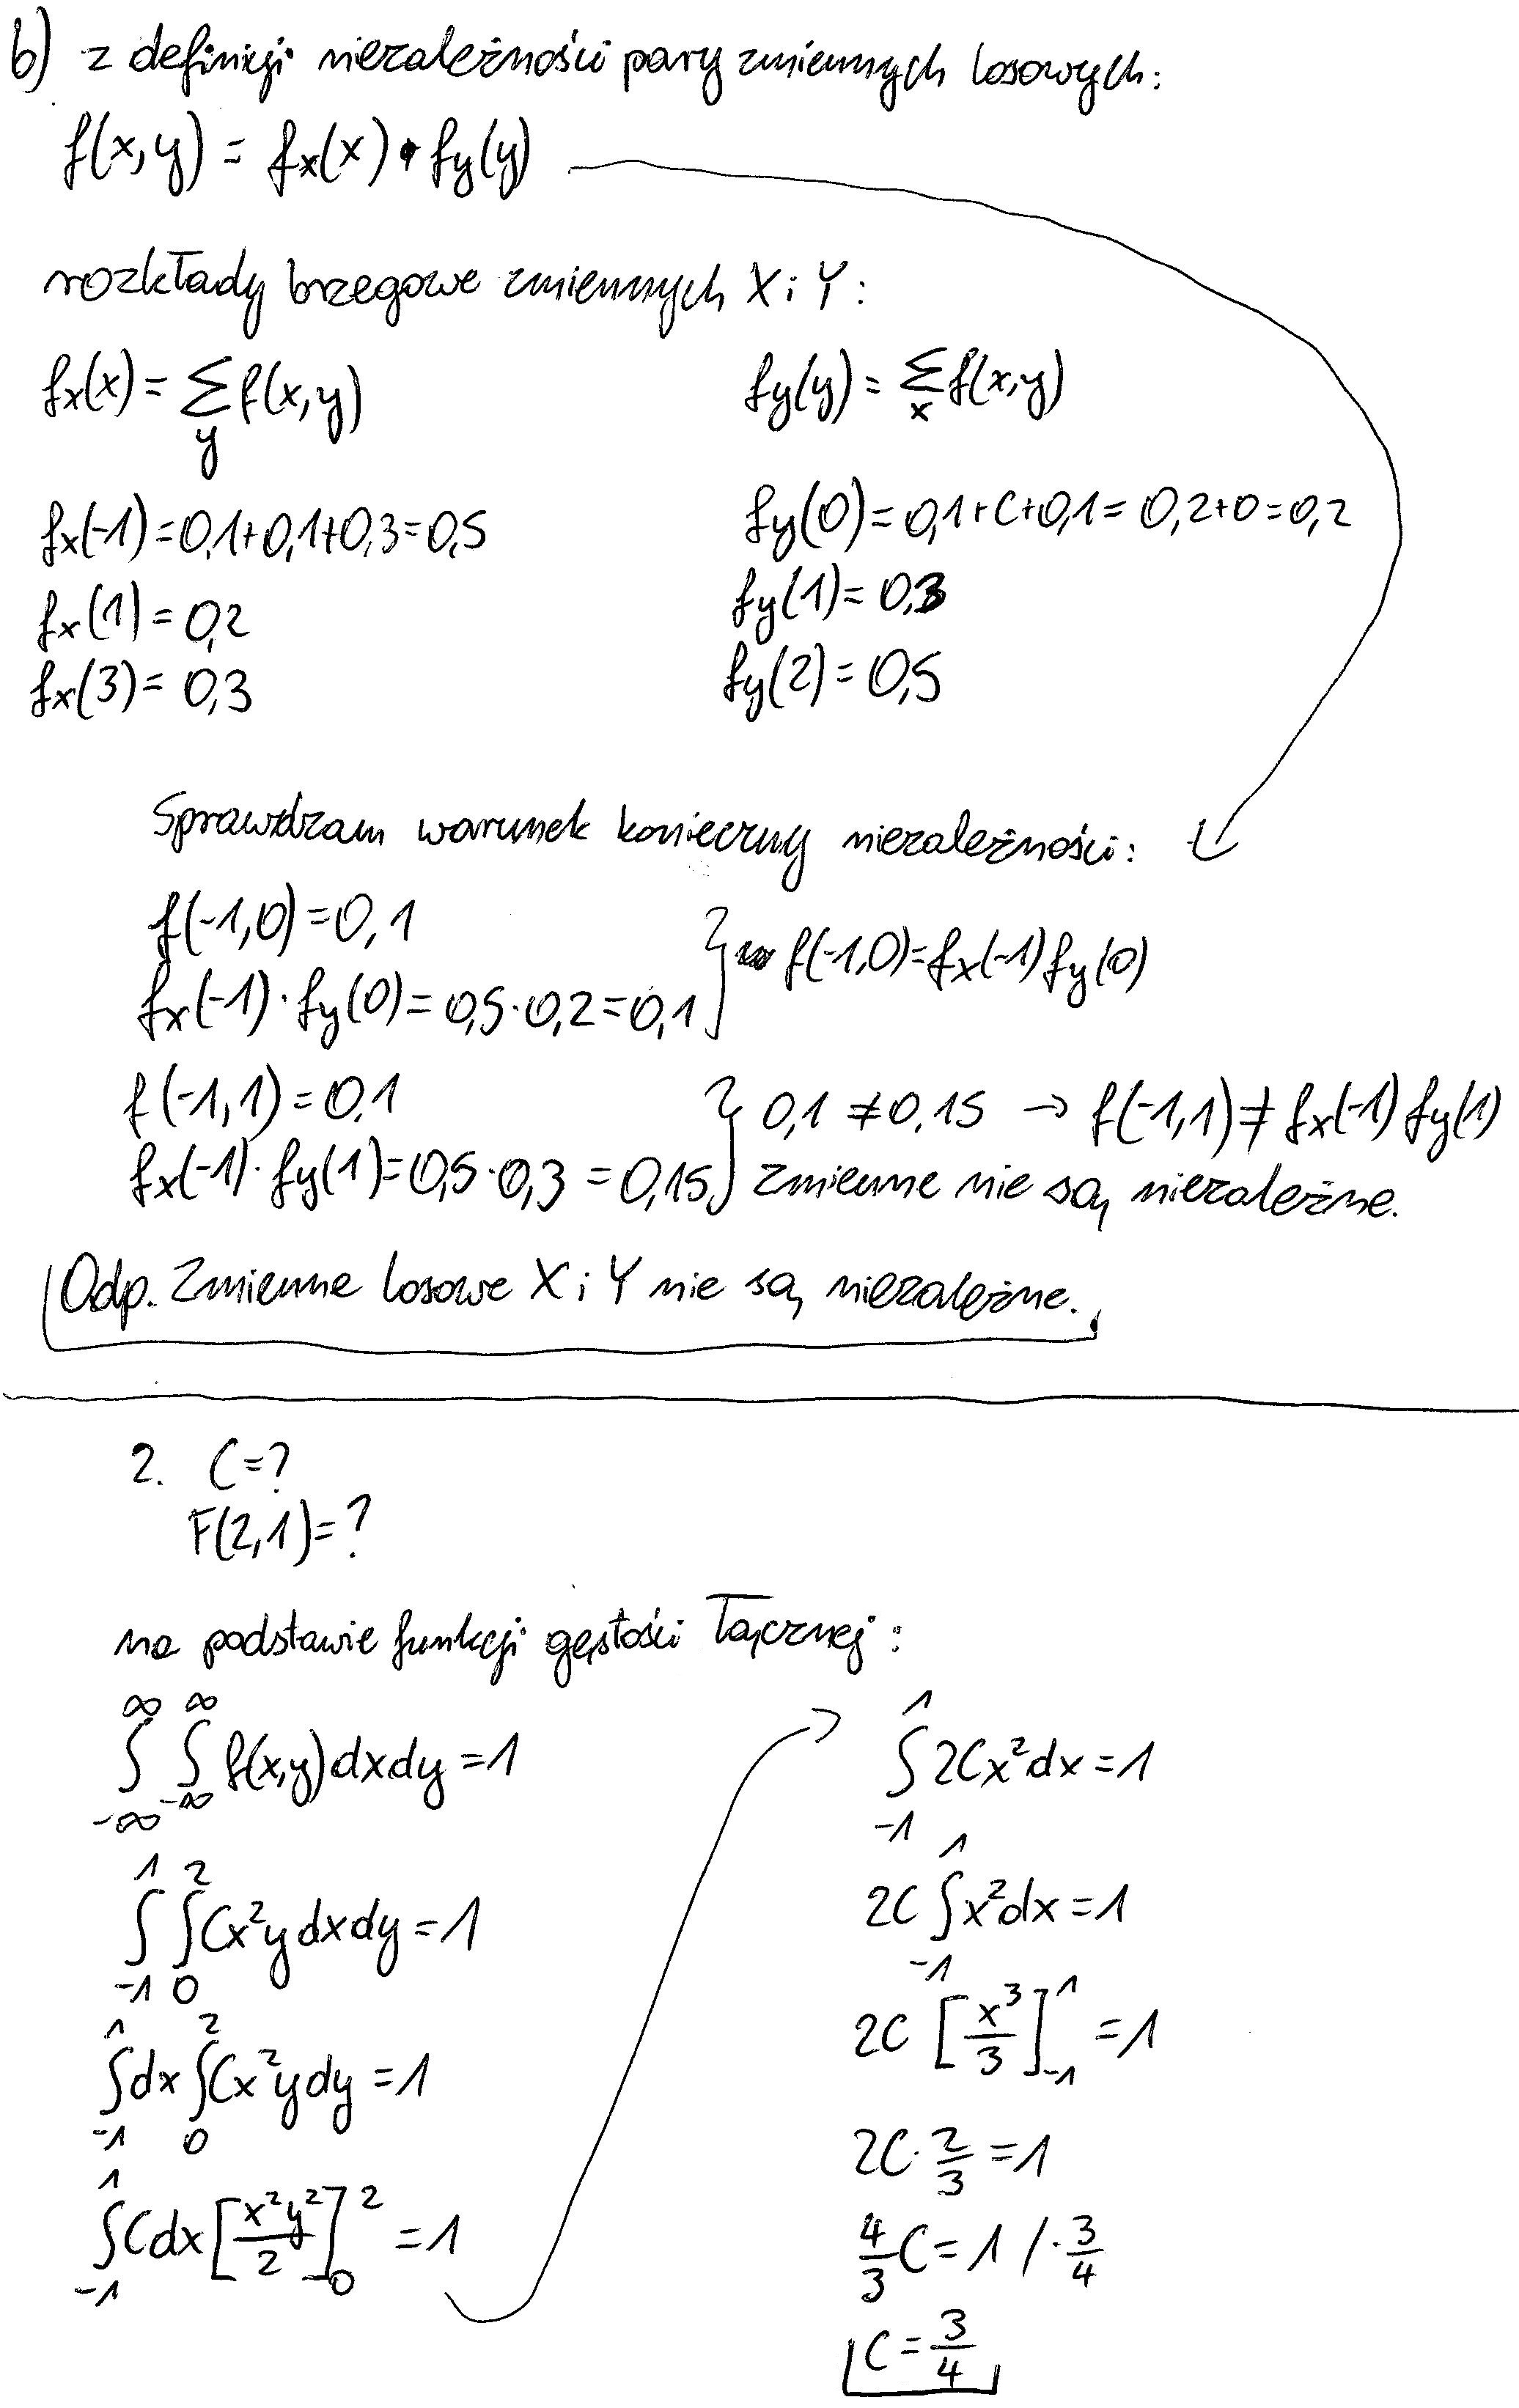 b) z definicji niezależności pary zmiennych losowych:
f(x,y) = fx(x) • fy(y)
rozkłady brzegowe zmiennych X i Y:
fx(x) = Σ_y f(x,y)
fy(y) = Σ_x f(x,y)
fx(-1) = 0,1+0,1+0,3=0,5
fy(0) = 0,1+C+0,1= 0,2+0=0,2
fx(1) = 0,2
fy(1) = 0,3
fx(3) = 0,3
fy(2) = 0,5
Sprawdzam warunek konieczny niezależności:
f(-1,0) = 0,1
fx(-1)·fy(0) = 0,5·0,2=0,1
f(-1,0)=fx(-1)fy(0)
f(-1,1) = 0,1
fx(-1)·fy(1)=0,5·0,3 = 0,15
0,1 ≠ 0,15 → f(-1,1) ≠ fx(-1) fy(1)
zmienne nie są niezależne.
Odp. Zmienne losowe X i Y nie są niezależne.
2. C=?
F(2,1)=?
na podstawie funkcji gęstości łącznej:
∫_{-∞}^{∞} ∫_{-∞}^{∞} f(x,y)dxdy = 1
∫_{-1}^{1} ∫_{0}^{2} Cx²y dxdy = 1
∫_{-1}^{1} dx ∫_{0}^{2} Cx²y dy = 1
∫_{-1}^{1} C dx [x²y²/2]_{0}^{2} = 1
∫_{-1}^{1} 2Cx²dx = 1
2C ∫_{-1}^{1} x²dx = 1
2C [x³/3]_{-1}^{1} = 1
2C · 2/3 = 1
4/3 C = 1 / · 3/4
C = 3/4